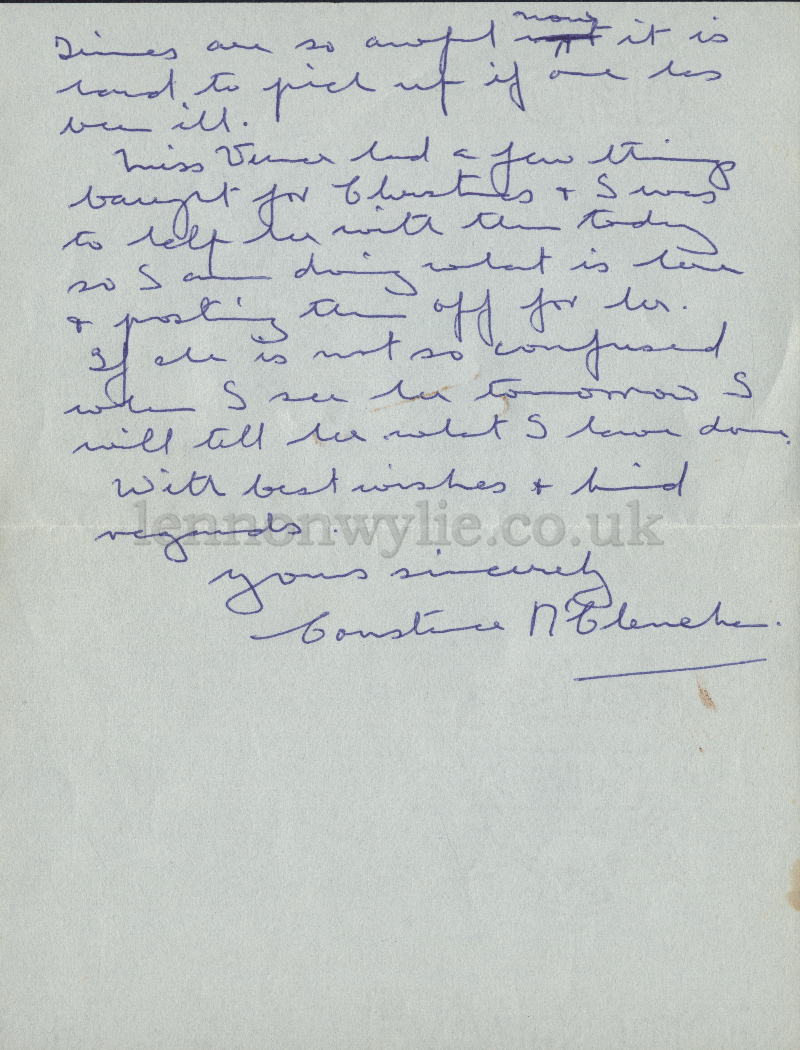 Times are so awful now it is
hard to pick up if one has
been ill.
Miss Verner had a few things
bought for Christmas & I was
to help her with them today
so I am doing what is here
& posting them off for her.
If she is not so confused
when I see her tomorrow I
will tell her what I have done.
With best wishes & kind
regards.
lennonwylie.co.uk
yours sincerely
Constance